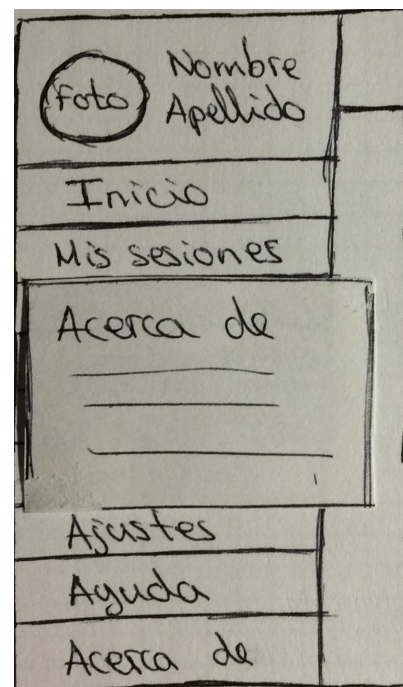 Foto
Nombre
Apellido
Inicio
Mis sesiones
Acerca de
Ajustes
Ayuda
Acerca de